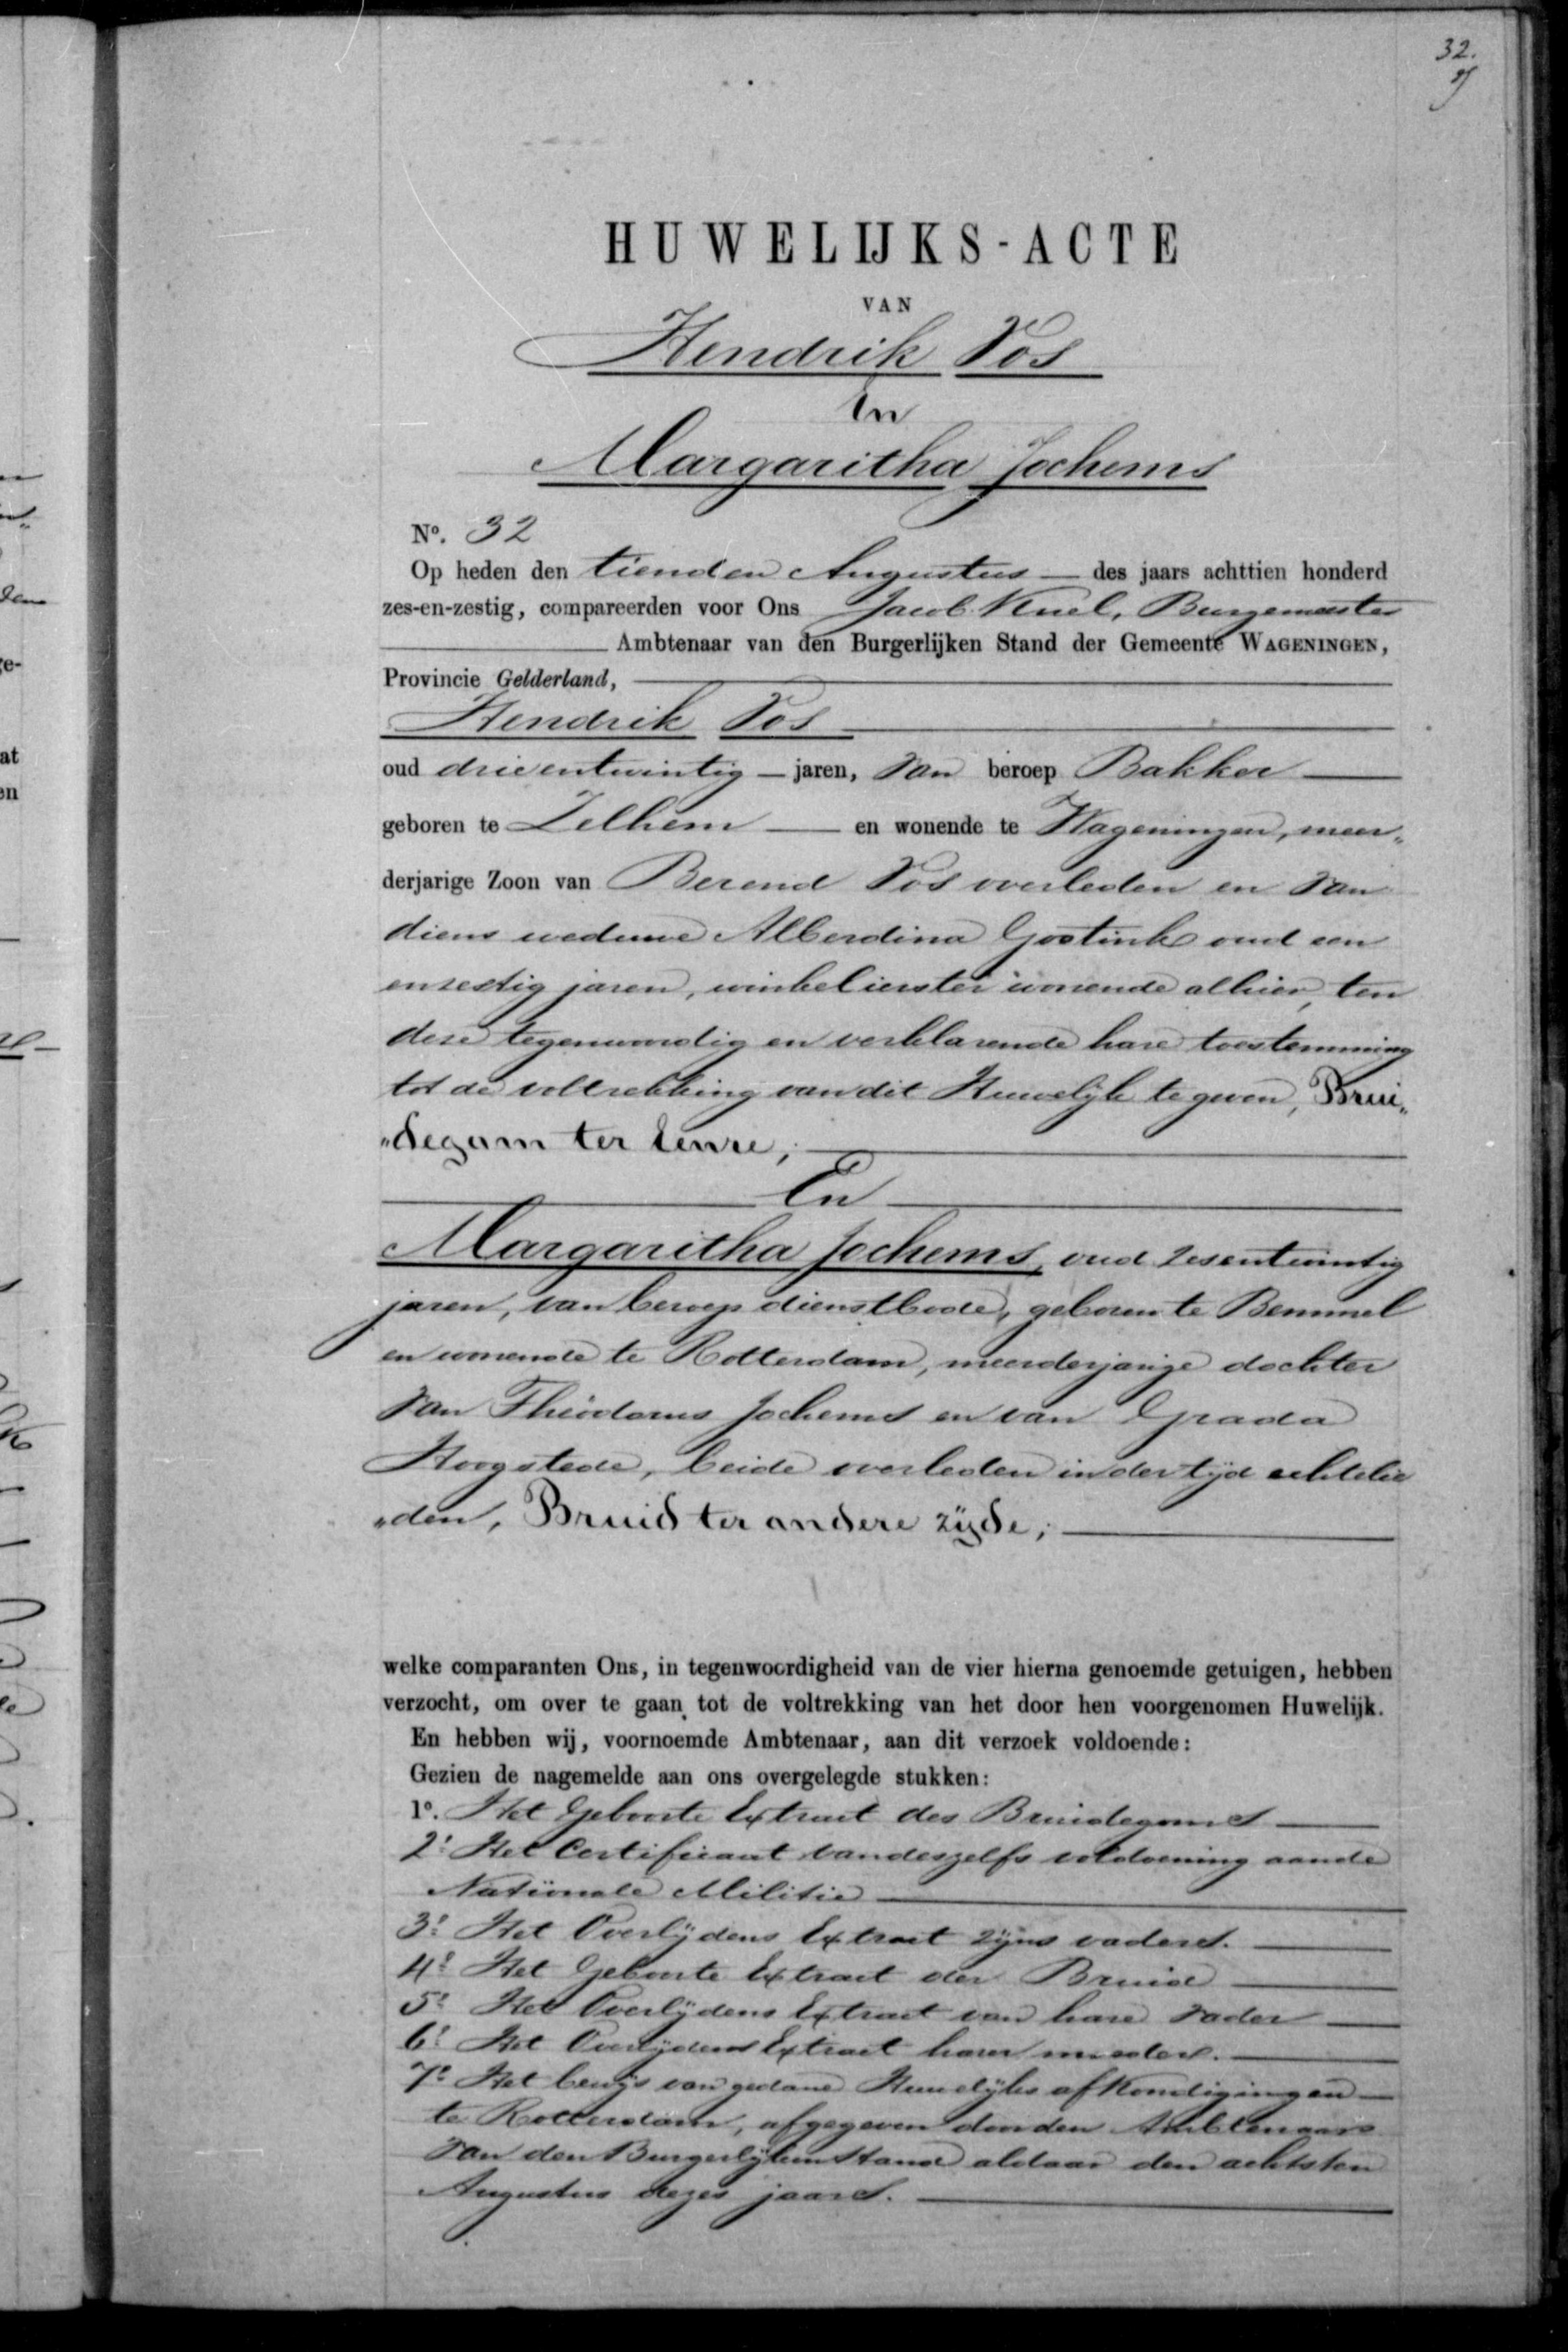 32.
HUWELIJKS-ACTE
VAN
Hendrik Vos
En
Margaritha Jochems
No. 32
Op heden den tienden Augustus — des jaars achttien honderd
zes-en-zestig, compareerden voor Ons Jacob Knel, Burgemeester
Ambtenaar van den Burgerlijken Stand der Gemeente WAGENINGEN,
Provincie Gelderland,
Hendrik Vos
oud drieentwintig — jaren, van beroep Bakker —
geboren te Zelhem — en wonende te Wageningen, meer„
derjarige Zoon van Berend Vos overleden en van
diens weduwe Alberdina Gostink oud een
enzestig jaren, winkelierster wonende alhier, ten
deze tegenwoordig en verklarende hare toestemming
tot de voltrekking van dit Huwelijk te geven, Brui„
„degom ter eenre;
En
Margaritha Jochems, oud zesentwintig
jaren, van beroep dienstbode, geboren te Bemmel
en wonende te Rotterdam, meerderjarige dochter
van Theodorus Jochems en van Grada
Hoogstede, beide overleden in der tijd echtelie
„den, Bruid ter andere zijde;
welke comparanten Ons, in tegenwoordigheid van de vier hierna genoemde getuigen, hebben
verzocht, om over te gaan tot de voltrekking van het door hen voorgenomen Huwelijk.
En hebben wij, voornoemde Ambtenaar, aan dit verzoek voldoende:
Gezien de nagemelde aan ons overgelegde stukken:
1o. Het Geboorte Extract des Bruidegoms —
2o Het Certificaat van deszelfs voldoening aan de
Nationale Militie —
3o Het Overlijdens Extract zijns vaders. —
4o Het Geboorte Extract der Bruid —
5o Het Overlijdens Extract van hare vader —
6o Het Overlijdens Extract harer moeder. —
7o Het bewijs van gedane Huwelijks afkondigingen —
te Rotterdam, afgegeven door den Ambtenaar
van den Burgerlijken Stand aldaar den achtsten
Augustus dezes jaars. —